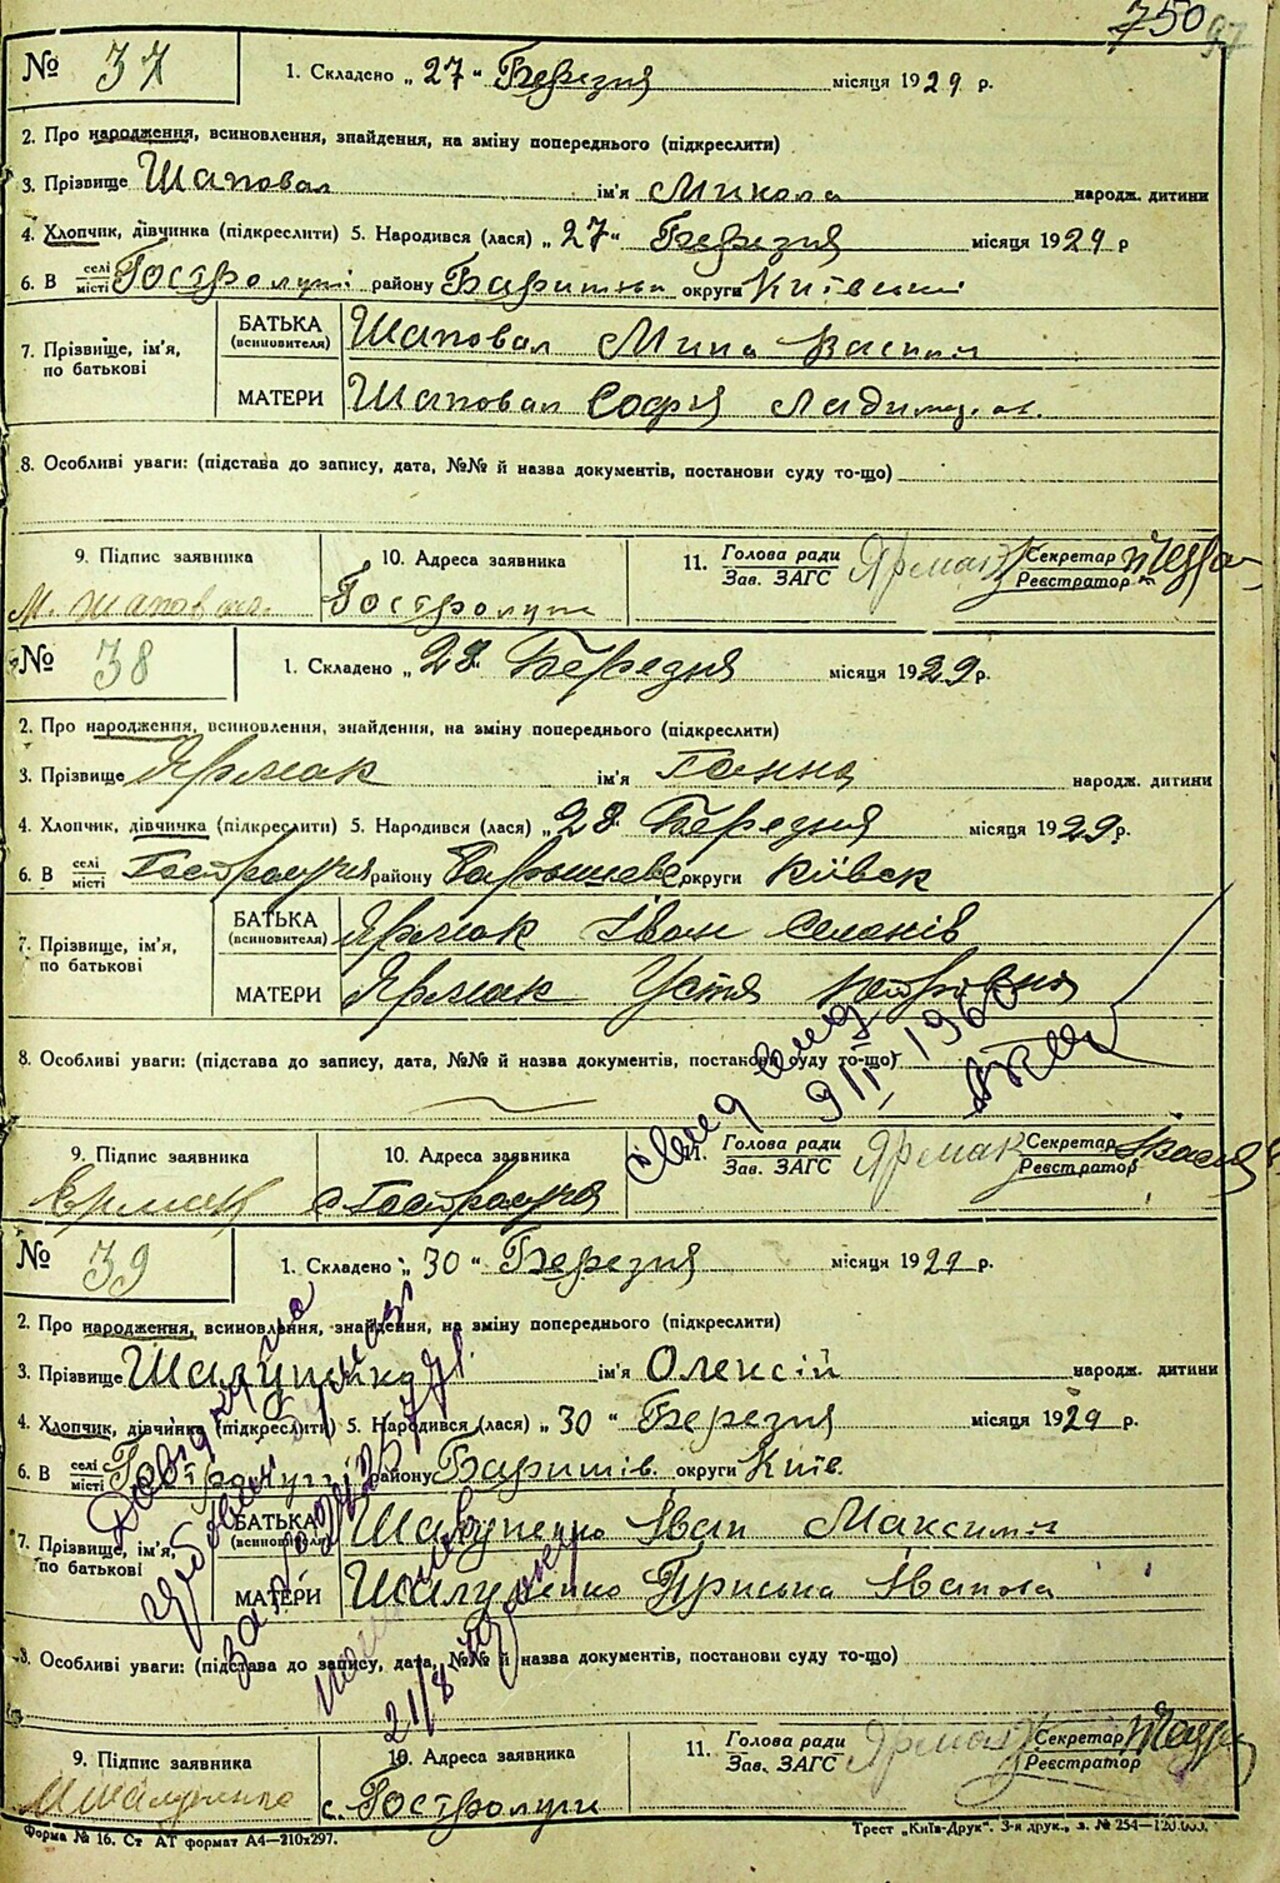 750 97
№ 37 1. Складено „27“ Березня місяця 1929 р.
2. Про народження, всиновлення, знайдення, на зміну попереднього (підкреслити)
3. Прізвище Шаповал ім'я Микола народж. дитини
4. Хлопчик, дівчинка (підкреслити) 5. Народився (лася) „27“ Березня місяця 1929 р
6. В селі місті Гостролуччі району Баришів округи Київські
7. Прізвище, ім'я, по батькові БАТЬКА (всиновителя) Шаповал Мина Васил
МАТЕРИ Шаповал Софія
8. Особливі уваги: (підстава до запису, дата, №№ й назва документів, постанови суду то-що)
9. Підпис заявника 10. Адреса заявника 11. Голова ради Зав. ЗАГС Ярмак Секретар Реєстратор
М. Шаповал Гостролуч
№ 38 1. Складено „28“ Березня місяця 1929 р.
2. Про народження, всиновлення, знайдення, на зміну попереднього (підкреслити)
3. Прізвище Ярмак ім'я Ганна народж. дитини
4. Хлопчик, дівчинка (підкреслити) 5. Народився (лася) „28“ Березня місяця 1929 р.
6. В селі місті Гостролуччя району Баришевс округи Київск
7. Прізвище, ім'я, по батькові БАТЬКА (всиновителя) Ярмак Іван
МАТЕРИ Ярмак Устя Петровна
8. Особливі уваги: (підстава до запису, дата, №№ й назва документів, постанови суду то-що)
9/II 1960
9. Підпис заявника 10. Адреса заявника 11. Голова ради Зав. ЗАГС Ярмак Секретар Реєстратор
Ермак с Гостролуччя
№ 39 1. Складено „30“ Березня місяця 1929 р.
2. Про народження, всиновлення, знайдення, на зміну попереднього (підкреслити)
3. Прізвище Шалупенко ім'я Олексій народж. дитини
4. Хлопчик, дівчинка (підкреслити) 5. Народився (лася) „30“ Березня місяця 1929 р.
6. В селі місті Гостролуччі району Баришів. округи Київ.
7. Прізвище, ім'я, по батькові БАТЬКА (всиновителя) Шалупенко Іван Максимів
МАТЕРИ Шалупенко Пріська Іванова
8. Особливі уваги: (підстава до запису, дата, №№ й назва документів, постанови суду то-що)
21/8
9. Підпис заявника 10. Адреса заявника 11. Голова ради Зав. ЗАГС Ярмак Секретар Реєстратор
Шалупенко с. Гостролуч
Форма № 16. Ст АТ формат А4—210x297. Трест „Київ-Друк“. 3-я друк., з. № 254—120.000.